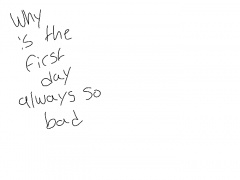 Why
is the
first
day
always so
bad